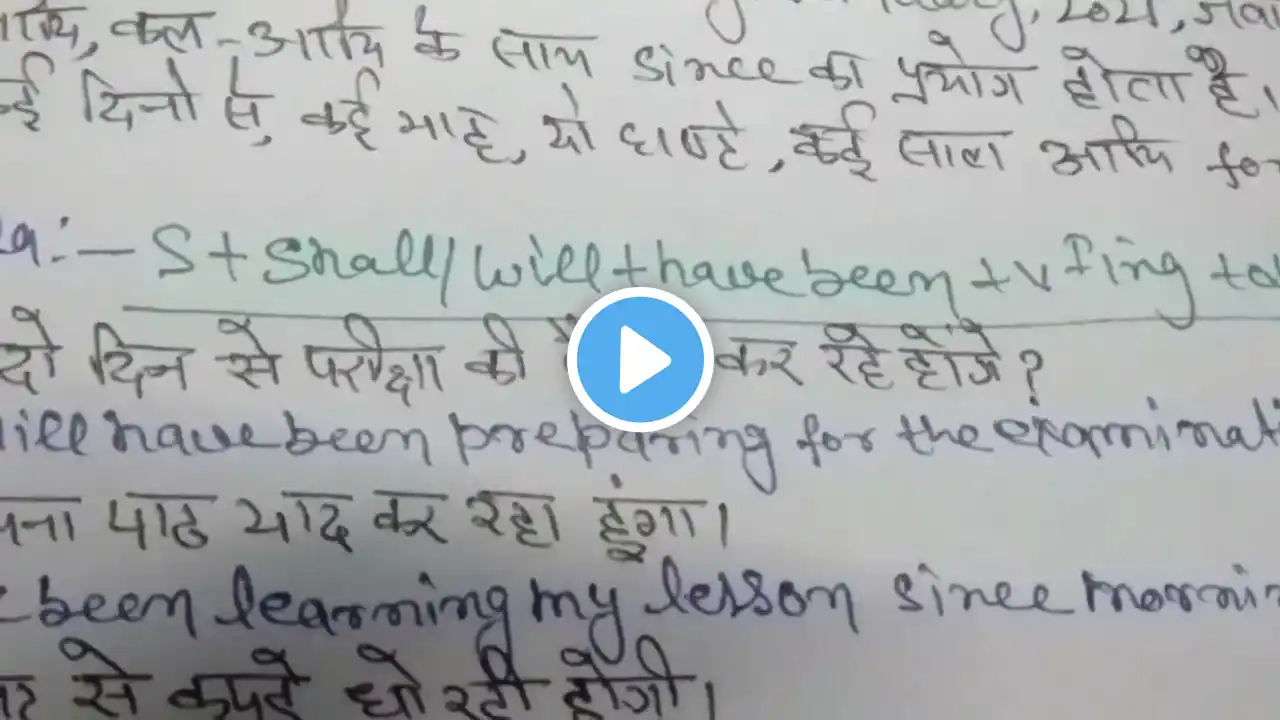 कल - आदि के साथ since का प्रयोग होता है।
दिनो से, कई माह, दो घण्टे, कई साल आदि for
:- S + Shall/will + have been + v I ing + o
दो दिन से परीक्षा की कर रहे होंगे?
will have been preparing for the examinati
पना पाठ याद कर रहा हूंगा।
been learning my lesson since mornin
से कपड़े धो रही होगी।